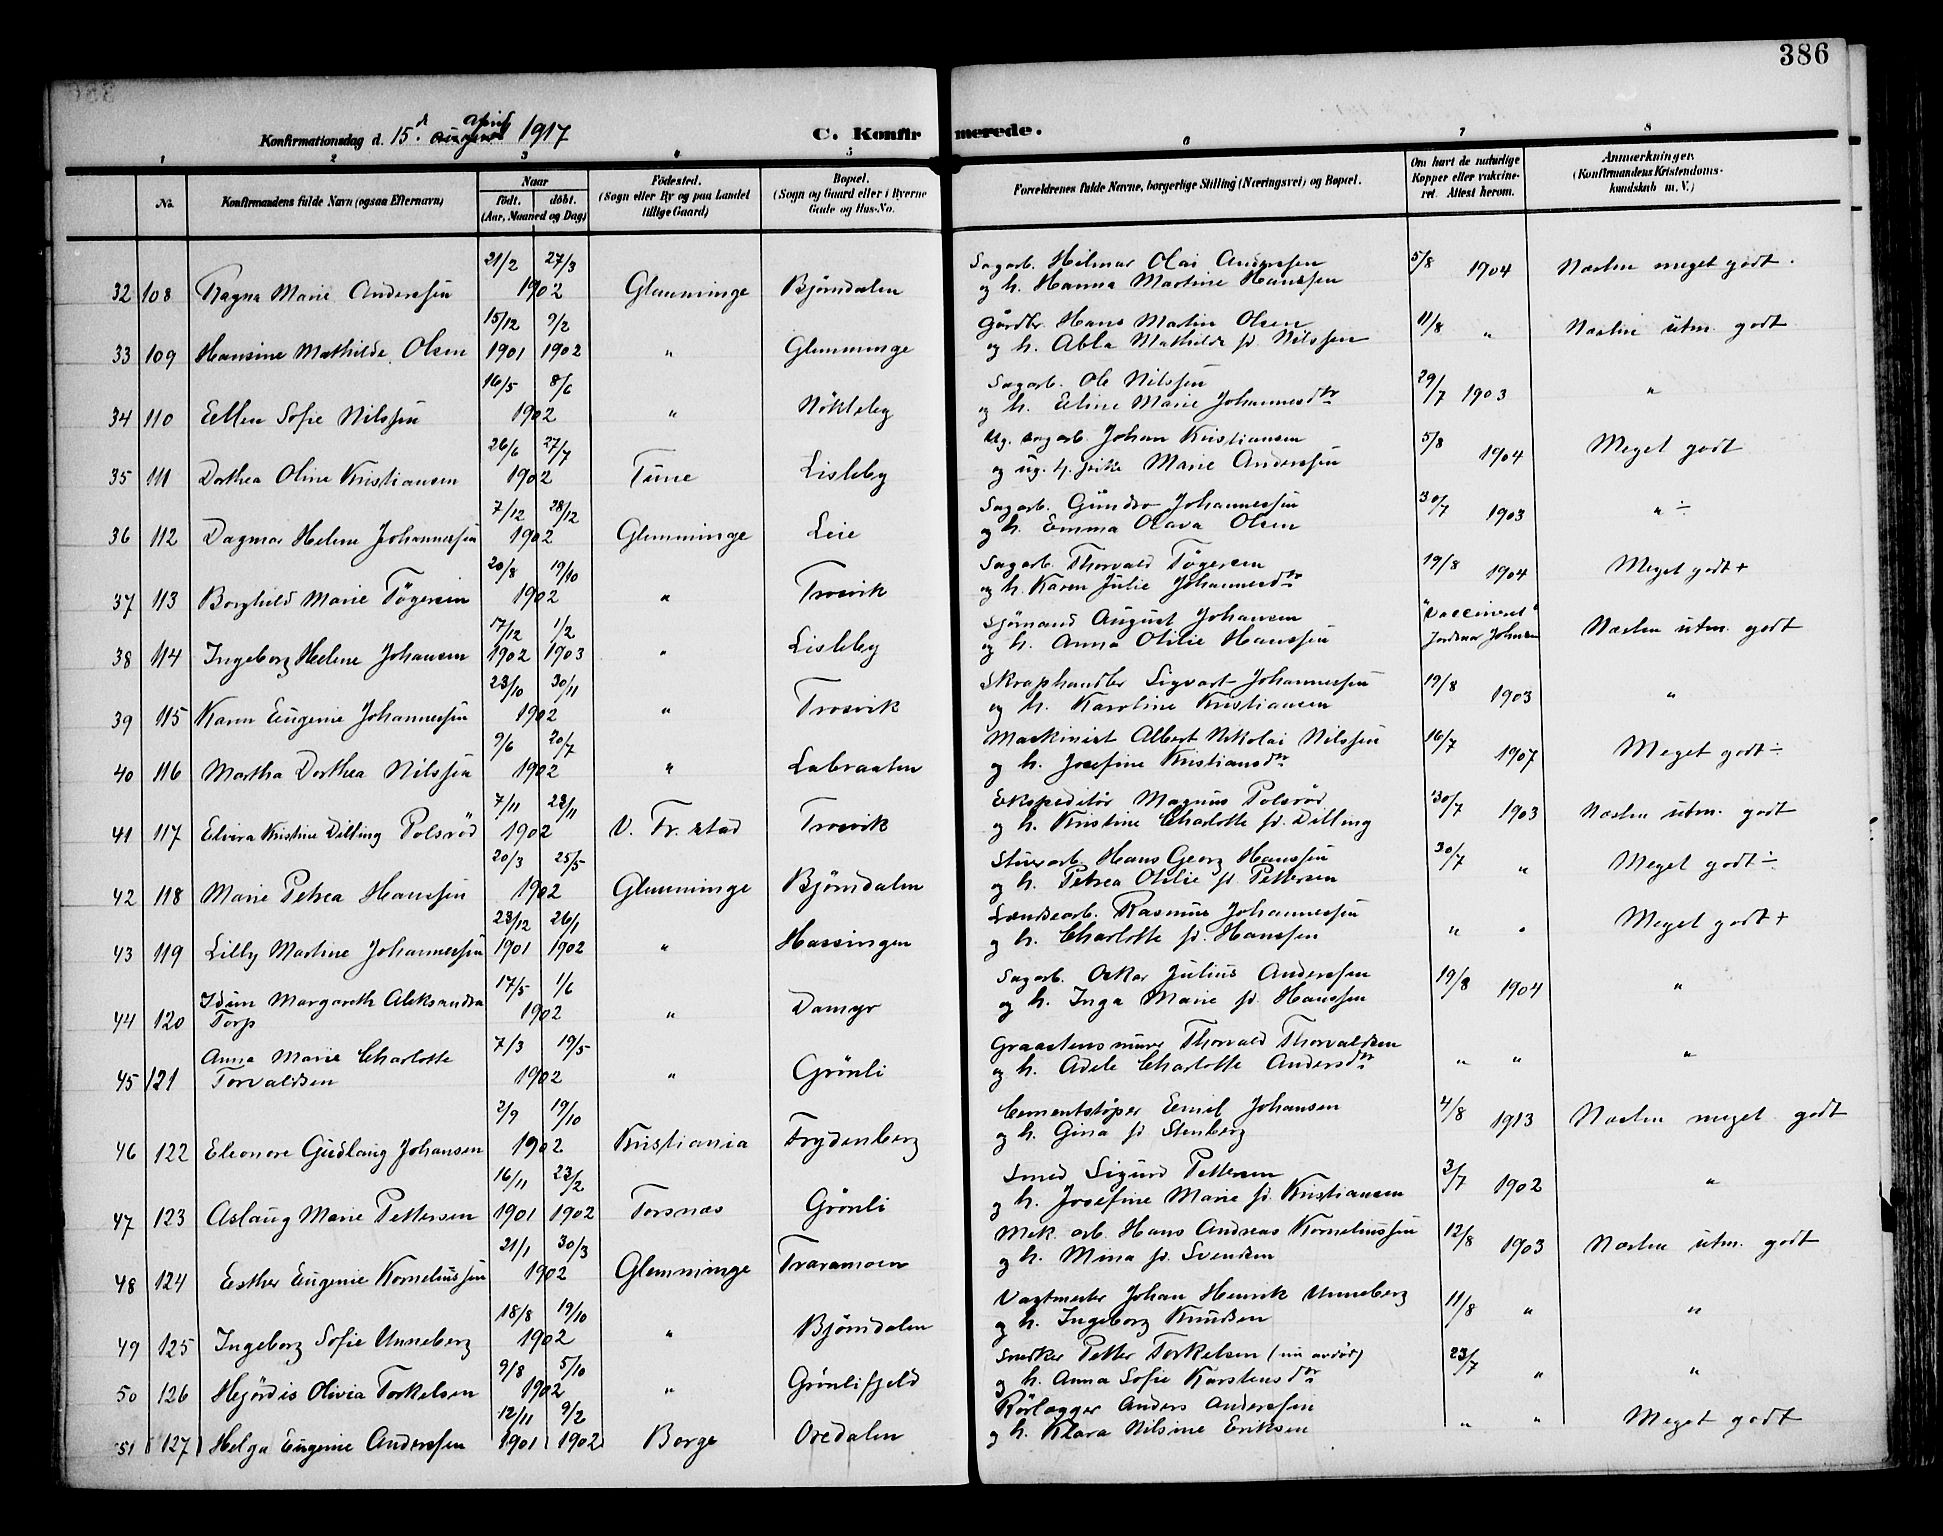 386
Konfirmationsdag d. 15. d April 1917
C. Konfirmerede.
1 2 3 4 5 6 7 8
No. Konfirmandens fulde Navn (ogsaa Efternavn) Naar født. døbt. (Aar, Maaned og Dag) Fødested. (Sogn eller By og paa Landet tillige Gaard) Bopæl. (Sogn og Gaard eller i Byerne Gade og Hus-No. Forældrenes fulde Navne, borgerlige Stilling (Næringsvei) og Bopæl. Om havt de naturlige Kopper eller vakcineret. Attest herom. Anmærkninger. (Konfirmandens Kristendomskundskab m. V.)
21/2 27/3 Sagarb. Hilmar Olai Anderssen 5/8
32 108 Ragna Marie Anderssen 1902 Glemminge Bjørndalen og h. Hanna Martine Hanssen 1904 Næsten meget godt.
15/12 9/2 Gårdbr. Hans Martin Olsen 11/8
33 109 Hansine Mathilde Olsen 1901 1902 " Glemminge og h. Abla Mathilde f. Nilssen " Næsten utm. godt
16/5 8/6 Sagarb. Ole Nilssen 29/7
34 110 Ellen Sofie Nilssen 1902 " Nökleby og h. Eline Marie Johannesdtr 1903 "
26/6 27/7 Ug. sagarb. Johan Kristiansen 5/8
35 111 Dorthea Oline Kristiansen 1902 Tune Lisleby og ug. Marie Anderssen 1904 Meget godt
7/12 28/12 Sagarb. Gunder Johannessen 30/7
36 112 Dagmar Helene Johannessen 1902 Glemminge Leie og h. Emma Olava Olsen 1903 " ÷
20/8 19/10 Sagarb. Thorvald Tögersen 19/8
37 113 Borghild Marie Tögersen 1902 " Trosvik og h. Karen Julie Johannesdtr 1904 Meget godt +
17/12 1/2 Sjömand August Johansen "Vaccineret"
38 114 Ingeborg Helene Johansen 1902 1903 " Lisleby og h. Anna Otilie Hanssen Jordmor Johnsen Næsten utm. godt
23/10 30/11 Skraphandler Sigvart Johannessen 19/8
39 115 Karen Eugenie Johannessen 1902 " Trosvik og h. Karoline Kristiansen 1903 "
9/6 20/7 Maskinist Albert Nikolai Nilssen 16/7
40 116 Martha Dorthea Nilssen 1902 " Labraaten og h. Josefine Kristiansdtr 1907 Meget godt ÷
7/11 23/11 Ekspeditör Magnus Polsröd 30/7
41 117 Elvira Kristine Dilling Polsröd 1902 V. Fr.stad Trosvik og h. Kristine Charlotte f. Dilling 1903 Næsten utm. godt
20/3 25/5 Stuerarb. Hans Georg Hanssen 30/7
42 118 Marie Petrea Hanssen 1902 Glemminge Bjørndalen og h. Petrea Otilie f. Pettersen " Meget godt ÷
23/12 26/1 Landsearb. Rasmus Johannessen
43 119 Lilly Martine Johannessen 1901 1902 " Hassingen og h. Charlotte f. Hanssen " " Meget godt +
17/5 1/6 Sagarb. Oskar Julius Anderssen 19/8
44 120 Idun Margareth Aleksandra Torp 1902 " Damyr og h. Inga Marie f. Hanssen 1904 "
7/3 19/5 Graastensmurer Thorvald Thorvaldsen
45 121 Anna Marie Charlotte Torvaldsen 1902 " Grönli og h. Adele Charlotte Andersdtr " " "
2/9 19/10 Cementstöper Emil Johansen 4/8
46 122 Eleonore Gudlaug Johansen 1902 Kristiania Frydenberg og h. Gina f. Stenberg 1913 Næsten meget godt
16/11 23/2 Smed Sigurd Pettersen 3/7
47 123 Aslaug Marie Pettersen 1901 1902 Torsnæs Grönli og h. Josefine Marie f. Kristiansen 1902 "
21/1 30/3 Mek. arb. Hans Andreas Korneliussen 12/8
48 124 Esther Eugenie Korneliussen 1902 Glemminge Traramoen og h. Mina f. Svendsen 1903 Næsten utm. godt
18/8 19/10 Vagtmester Johan Henrik Unneberg 11/8
49 125 Ingeborg Sofie Unneberg 1902 " Bjørndalen og h. Ingeborg Knudsen " "
9/8 5/10 Snedker Petter Torkelsen (nu avdöd) 23/7
50 126 Hejördis Olivia Torkelsen 1902 " Grönlifjeld og h. Anna Sofie Karstensdtr " "
12/11 9/2 Rörlægger Anders Anderssen
51 127 Helga Eugenie Anderssen 1901 1902 Borge Oredalen og h. Klara Nilsine Eriksen " " Meget godt